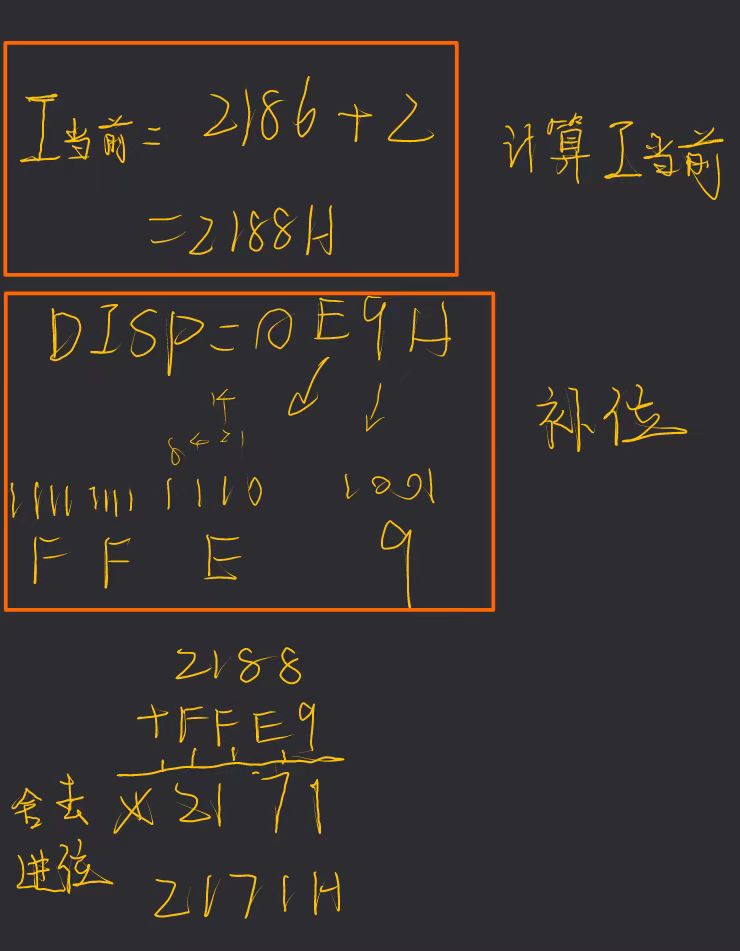 I当前 = 2186 + 2
= 2188H
计算I当前
DISP = 0E9H
补位
8 4 2 1
1111 1111 1110 1001
F F E 9
2188
+FFE9
舍去 × 2171
进位 2171H